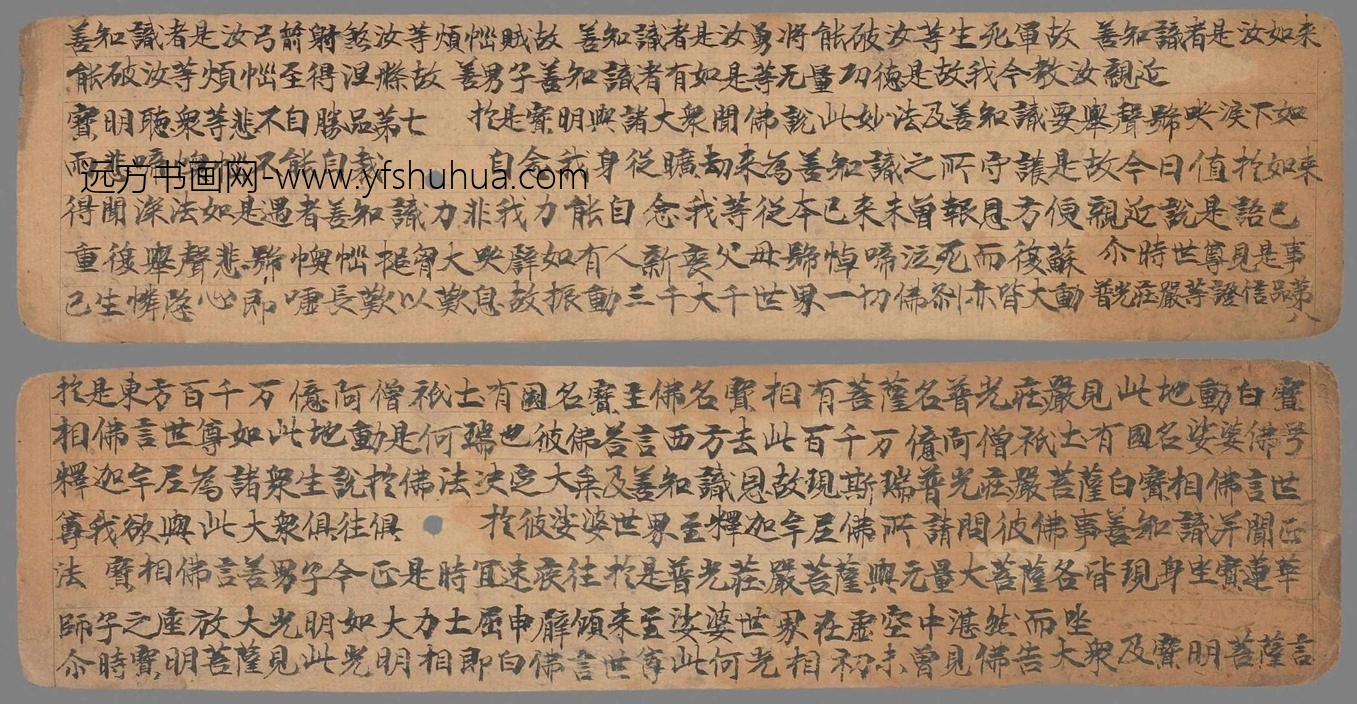 善知識者是汝弓箭射煞汝等煩惱賊故 善知識者是汝勇將能破汝等生死軍故 善知識者是汝如来
能破汝等煩惱至得涅槃故 善男子善知識者有如是等无量功德是故我今教汝親近
寶明聴衆等悲不自勝品第七 扵是寶明與諸大衆聞佛說此妙法及善知識要舉聲號哭淚下如
而悲 不能自裁 自念我身従曠劫来為善知識之所守護是故今日值扵如来
远方书画网-www.yfshuhua.com
得聞深法如是遇者善知識力非我力能自念我等従本已来未曽報恩方便親近說是語已
重復舉聲悲號懊惱搥胷大哭譬如有人新喪父母號悼啼泣死而復蘇 尒時世尊見是事
已生憐愍心即嘘長歎以歎息故振動三千大千世界一切佛刹亦皆大動 普光莊嚴等證信品第八
扵是東方百千万億阿僧祇土有國名寶主佛名寶相有菩薩名普光莊嚴見此地動白寶
相佛言世尊如此地動是何瑞也彼佛荅言西方去此百千万億阿僧祇土有國名娑婆佛号
釋迦牟尼為諸衆生說扵佛法決定大乗及善知識恩故現斯瑞普光莊嚴菩薩白寶相佛言世
尊我欲與此大衆俱往俱 扵彼娑婆世界至釋迦牟尼佛所請問彼佛事善知識并聞正
法 寶相佛言善男子今正是時宜速疾往扵是普光莊嚴菩薩與无量大菩薩各皆現身坐寶蓮華
師子之座放大光明如大力士屈申臂傾来至娑婆世界在虚空中湛然而坐
尒時寶明菩薩見此光明相即白佛言世尊此何光相初未曽見佛告大衆及寶明菩薩言